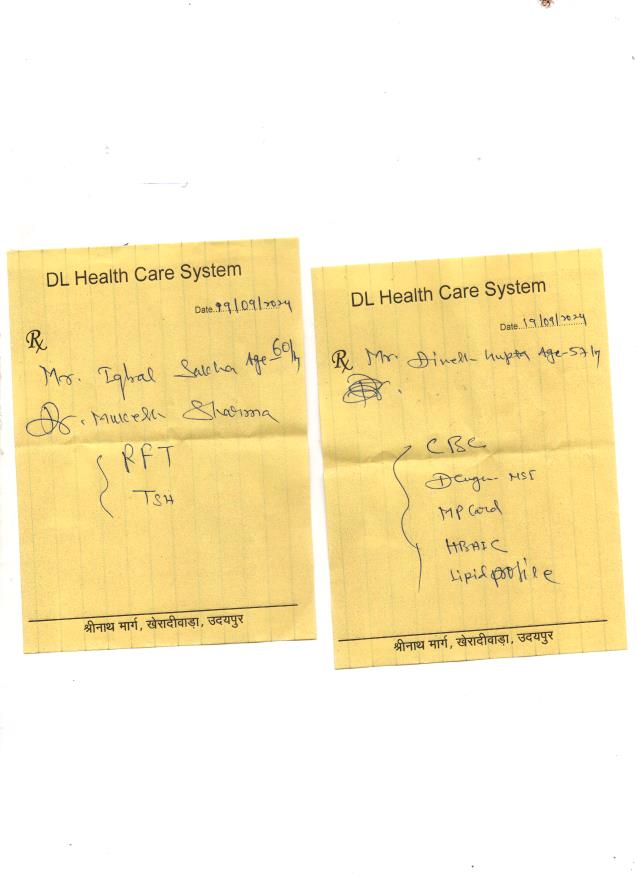 DL Health Care System
Date 19/09/2024
Rx
Mr. Iqbal Age 60/y
Dr. Mukesh Sharma
RFT
TSH
श्रीनाथ मार्ग, खेरादीवाड़ा, उदयपुर
DL Health Care System
Date 19/09/2024
Rx Mr. Dinesh Gupta Age-57/y
CBC
Dengue
MP Card
HBA1C
Lipid profile
श्रीनाथ मार्ग, खेरादीवाड़ा, उदयपुर